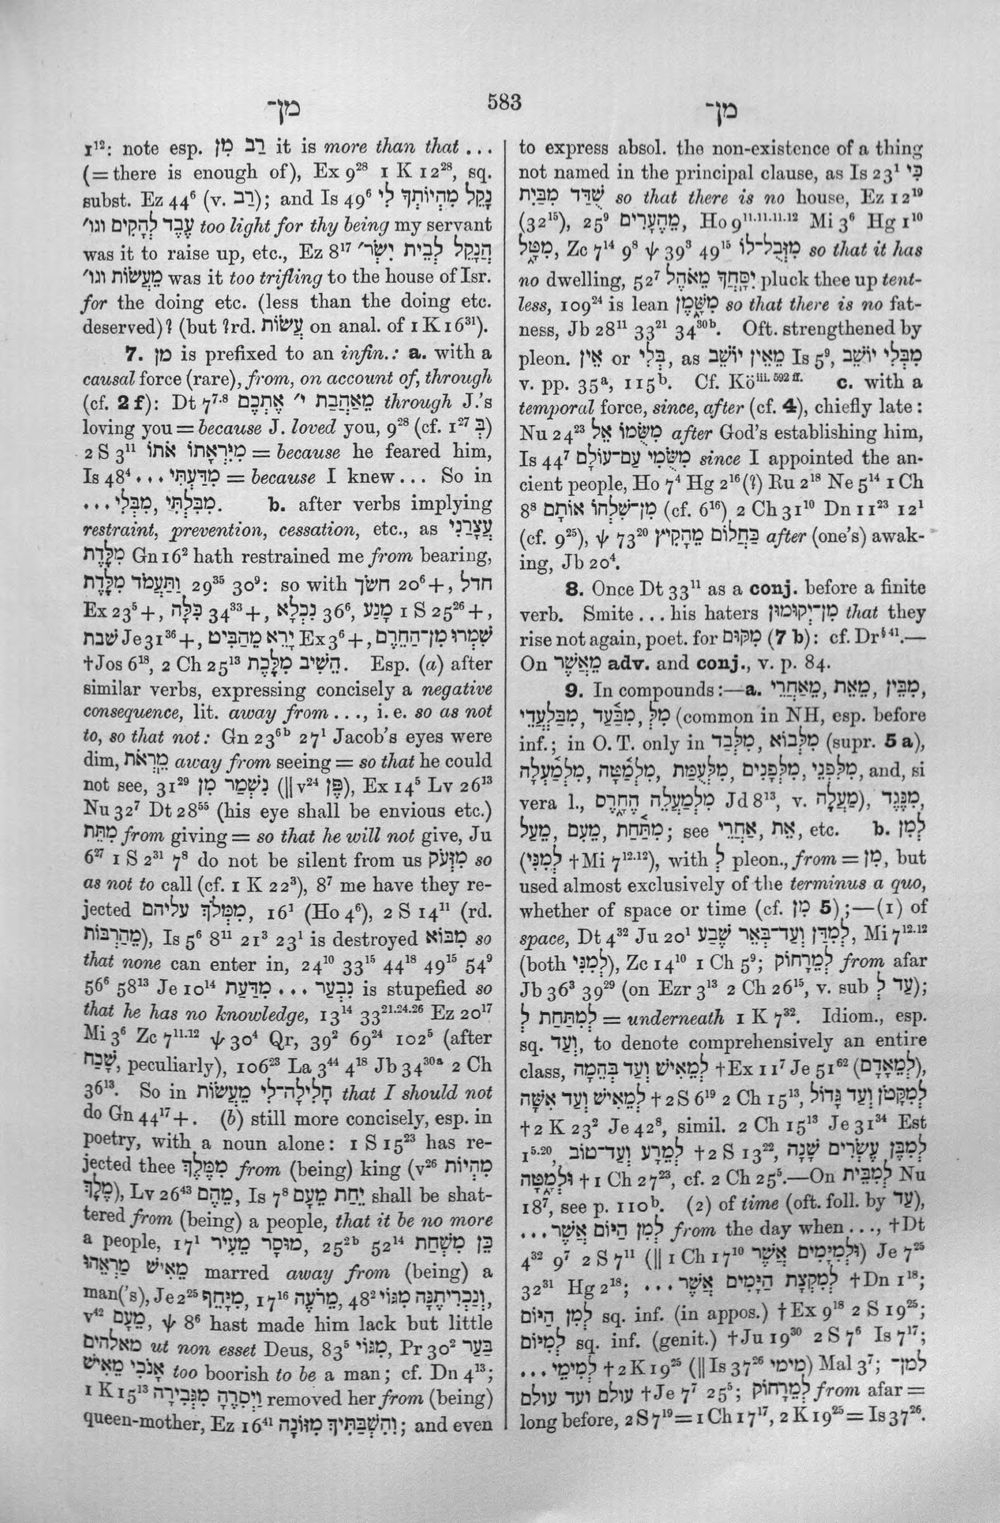 מִן־
583
מִן־
1¹²: note esp. רַב מִן it is more than that ...
(= there is enough of), Ex 9²⁸ 1 K 12²⁸, sq.
subst. Ez 44⁶ (v. רַב); and Is 49⁶ נָקֵל מִהְיוֹתְךָ לִי
עֶבֶד לְהָקִים וגו׳ too light for thy being my servant
was it to raise up, etc., Ez 8¹⁷ הֲנָקֵל לְבֵית יִשְׂר׳
מֵעֲשׂוֹת וגו׳ was it too trifling to the house of Isr.
for the doing etc. (less than the doing etc.
deserved)? (but ?rd. עֲשׂוֹת on anal. of 1 K 16³¹).
7. מִן is prefixed to an infin.: a. with a
causal force (rare), from, on account of, through
(cf. 2 f): Dt 7⁷·⁸ מֵאַהֲבַת י׳ אֶתְכֶם through J.'s
loving you = because J. loved you, 9²⁸ (cf. 1²⁷ בְּ)
2 S 3¹¹ מִיִּרְאָתוֹ אֹתוֹ = because he feared him,
Is 48⁴ מִדַּעְתִּי ... = because I knew... So in
מִבְּלִי, מִבִּלְתִּי ... b. after verbs implying
restraint, prevention, cessation, etc., as עֲצָרַנִי
מִלֶּדֶת Gn 16² hath restrained me from bearing,
וַתַּעֲמֹד מִלֶּדֶת 29³⁵ 30⁹: so with חשׂך 20⁶+, חדל
Ex 23⁵+, כִּלָּה 34³³+, נִכְלָא 36⁶, מָנַע 1 S 25²⁶+,
שׁבת Je 31³⁶+, יָרֵא מֵהַבִּיט Ex 3⁶+, שִׁמְרוּ מִן־הַחֵרֶם
†Jos 6¹⁸, 2 Ch 25¹³ הֵשִׁיב מִלֶּכֶת. Esp. (a) after
similar verbs, expressing concisely a negative
consequence, lit. away from ..., i.e. so as not
to, so that not: Gn 23⁶ᵇ 27¹ Jacob's eyes were
dim, מֵרְאֹת away from seeing = so that he could
not see, 31²⁹ נִשְׁמַר מִן (‖ v²⁴ פֶּן), Ex 14⁵ Lv 26¹³
Nu 32⁷ Dt 28⁵⁵ (his eye shall be envious etc.)
מִתֵּת from giving = so that he will not give, Ju
6²⁷ 1 S 2³¹ 7⁸ do not be silent from us מִזְּעֹק so
as not to call (cf. 1 K 22³), 8⁷ me have they re-
jected מִמְּלֹךְ עליהם, 16¹ (Ho 4⁶), 2 S 14¹¹ (rd.
מֵהַרְבּוֹת), Is 5⁶ 8¹¹ 21³ 23¹ is destroyed מִבּוֹא so
that none can enter in, 24¹⁰ 33¹⁵ 44¹⁸ 49¹⁵ 54⁹
56⁶ 58¹³ Je 10¹⁴ נִבְעַר ... מִדַּעַת is stupefied so
that he has no knowledge, 13¹⁴ 33²¹·²⁴·²⁶ Ez 20¹⁷
Mi 3⁶ Zc 7¹¹·¹² ψ 30⁴ Qr, 39² 69²⁴ 102⁵ (after
שָׁכַח, peculiarly), 106²³ La 3⁴⁴ 4¹⁸ Jb 34³⁰ᵃ 2 Ch
36¹³. So in חָלִילָה־לִּי מֵעֲשׂוֹת that I should not
do Gn 44¹⁷+. (b) still more concisely, esp. in
poetry, with a noun alone: 1 S 15²³ has re-
jected thee מִמֶּלֶךְ from (being) king (v²⁶ מִהְיוֹת
מֶלֶךְ), Lv 26⁴³ מֵהֶם, Is 7⁸ יֵחַת מֵעָם shall be shat-
tered from (being) a people, that it be no more
a people, 17¹ מוּסָר מֵעִיר, 25²ᵇ 52¹⁴ כֵּן מִשְׁחַת
מֵאִישׁ מַרְאֵהוּ marred away from (being) a
man('s), Je 2²⁵ מִיָּחֵף, 17¹⁶ מֵרֹעֶה, 48² וְנַכְרִיתֶנָּה מִגּוֹי,
v⁴² מֵעָם, ψ 8⁶ hast made him lack but little
מאלהים ut non esset Deus, 83⁵ מִגּוֹי, Pr 30² בַּעַר
אָנֹכִי מֵאִישׁ too boorish to be a man; cf. Dn 4¹³;
1 K 15¹³ וַיְסִרֶהָ מִגְּבִירָה removed her from (being)
queen-mother, Ez 16⁴¹ וְהִשְׁבַּתִּיךְ מִזּוֹנָה; and even
to express absol. the non-existence of a thing
not named in the principal clause, as Is 23¹ כִּי
שֻׁדַּד מִבַּיִת so that there is no house, Ez 12¹⁹
(32¹⁵), 25⁹ מֵהֶעָרִים, Ho 9¹¹·¹¹·¹¹·¹² Mi 3⁶ Hg 1¹⁰
מִטָּל, Zc 7¹⁴ 9⁸ ψ 39³ 49¹⁵ מִזְּבֻל־לוֹ so that it has
no dwelling, 52⁷ יִסָּחֲךָ מֵאֹהֶל pluck thee up tent-
less, 109²⁴ is lean מִשָּׁמֶן so that there is no fat-
ness, Jb 28¹¹ 33²¹ 34³⁰ᵇ. Oft. strengthened by
pleon. אֵין or בְּלִי, as מֵאֵין יוֹשֵׁב Is 5⁹, מִבְּלִי יוֹשֵׁב
v. pp. 35ᵃ, 115ᵇ. Cf. Köⁱⁱⁱ·⁵⁹² ᶠᶠ· c. with a
temporal force, since, after (cf. 4), chiefly late:
Nu 24²³ מִשֻּׂמוֹ אֵל after God's establishing him,
Is 44⁷ מִשּׂוּמִי עַם־עוֹלָם since I appointed the an-
cient people, Ho 7⁴ Hg 2¹⁶(?) Ru 2¹⁸ Ne 5¹⁴ 1 Ch
8⁸ מִן־שִׁלְחוֹ אוֹתָם (cf. 6¹⁶) 2 Ch 31¹⁰ Dn 11²³ 12¹
(cf. 9²⁵), ψ 73²⁰ כַּחֲלוֹם מֵהָקִיץ after (one's) awak-
ing, Jb 20⁴.
8. Once Dt 33¹¹ as a conj. before a finite
verb. Smite ... his haters מִן־יְקוּמוּן that they
rise not again, poet. for מִקּוּם (7 b): cf. Dr§ ⁴¹.—
On מֵאֲשֶׁר adv. and conj., v. p. 84.
9. In compounds:—a. מֵאַחֲרֵי, מֵאֵת, מִבֵּין,
מִבַּלְעֲדֵי, מִבַּעַד, מִלְּ (common in NH, esp. before
inf.; in O. T. only in מִלְּבוֹא, מִלְּבַד (supr. 5 a),
מִלְמַעְלָה, מִלְמַטָּה, מִלְּעֻמַּת, מִלְּפָנִים, מִלִּפְנֵי, and, si
vera l., מִלְמַעֲלֵה הֶחָרֶס Jd 8¹³, v. מַעֲלֶה), מִנֶּגֶד,
מֵעַל, מֵעִם, מִתַּחַת; see אַחֲרֵי, אֵת, etc. b. לְמִן
(לְמִנִּי †Mi 7¹²·¹²), with לְ pleon., from = מִן, but
used almost exclusively of the terminus a quo,
whether of space or time (cf. מִן 5);—(1) of
space, Dt 4³² Ju 20¹ לְמִדָּן וְעַד־בְּאֵר שֶׁבַע, Mi 7¹²·¹²
(both לְמִנִּי), Zc 14¹⁰ 1 Ch 5⁹; לְמֵרָחוֹק from afar
Jb 36³ 39²⁹ (on Ezr 3¹³ 2 Ch 26¹⁵, v. sub לְ עַד);
לְמִתַּחַת לְ = underneath 1 K 7³². Idiom., esp.
sq. וְעַד, to denote comprehensively an entire
class, לְמֵאִישׁ וְעַד בְּהֵמָה †Ex 11⁷ Je 51⁶² (לְמֵאָדָם),
לְמֵאִישׁ וְעַד אִשָּׁה †2 S 6¹⁹ 2 Ch 15¹³, לְמִקָּטֹן וְעַד גָּדוֹל
†2 K 23² Je 42⁸, simil. 2 Ch 15¹³ Je 31³⁴ Est
1⁵·²⁰, לְמֵרָע וְעַד־טוֹב †2 S 13²², לְמִבֶּן עֶשְׂרִים שָׁנָה
וּלְמַטָּה †1 Ch 27²³, cf. 2 Ch 25⁵.—On לְמִבֵּית Nu
18⁷, see p. 110ᵇ. (2) of time (oft. foll. by עַד),
לְמִן הַיּוֹם אֲשֶׁר ... from the day when ..., †Dt
4³² 9⁷ 2 S 7¹¹ (‖ 1 Ch 17¹⁰ וּלְמִיָּמִים אֲשֶׁר) Je 7²⁵
32³¹ Hg 2¹⁸; לְמִקְצָת הַיָּמִים אֲשֶׁר ... †Dn 1¹⁸;
לְמִן הַיּוֹם sq. inf. (in appos.) †Ex 9¹⁸ 2 S 19²⁵;
לְמִיּוֹם sq. inf. (genit.) †Ju 19³⁰ 2 S 7⁶ Is 7¹⁷;
לְמִימֵי ... †2 K 19²⁵ (‖ Is 37²⁶ מימי) Mal 3⁷; לְמִן־
עולם ועד עולם †Je 7⁷ 25⁵; לְמֵרָחוֹק from afar =
long before, 2 S 7¹⁹ = 1 Ch 17¹⁷, 2 K 19²⁵ = Is 37²⁶.